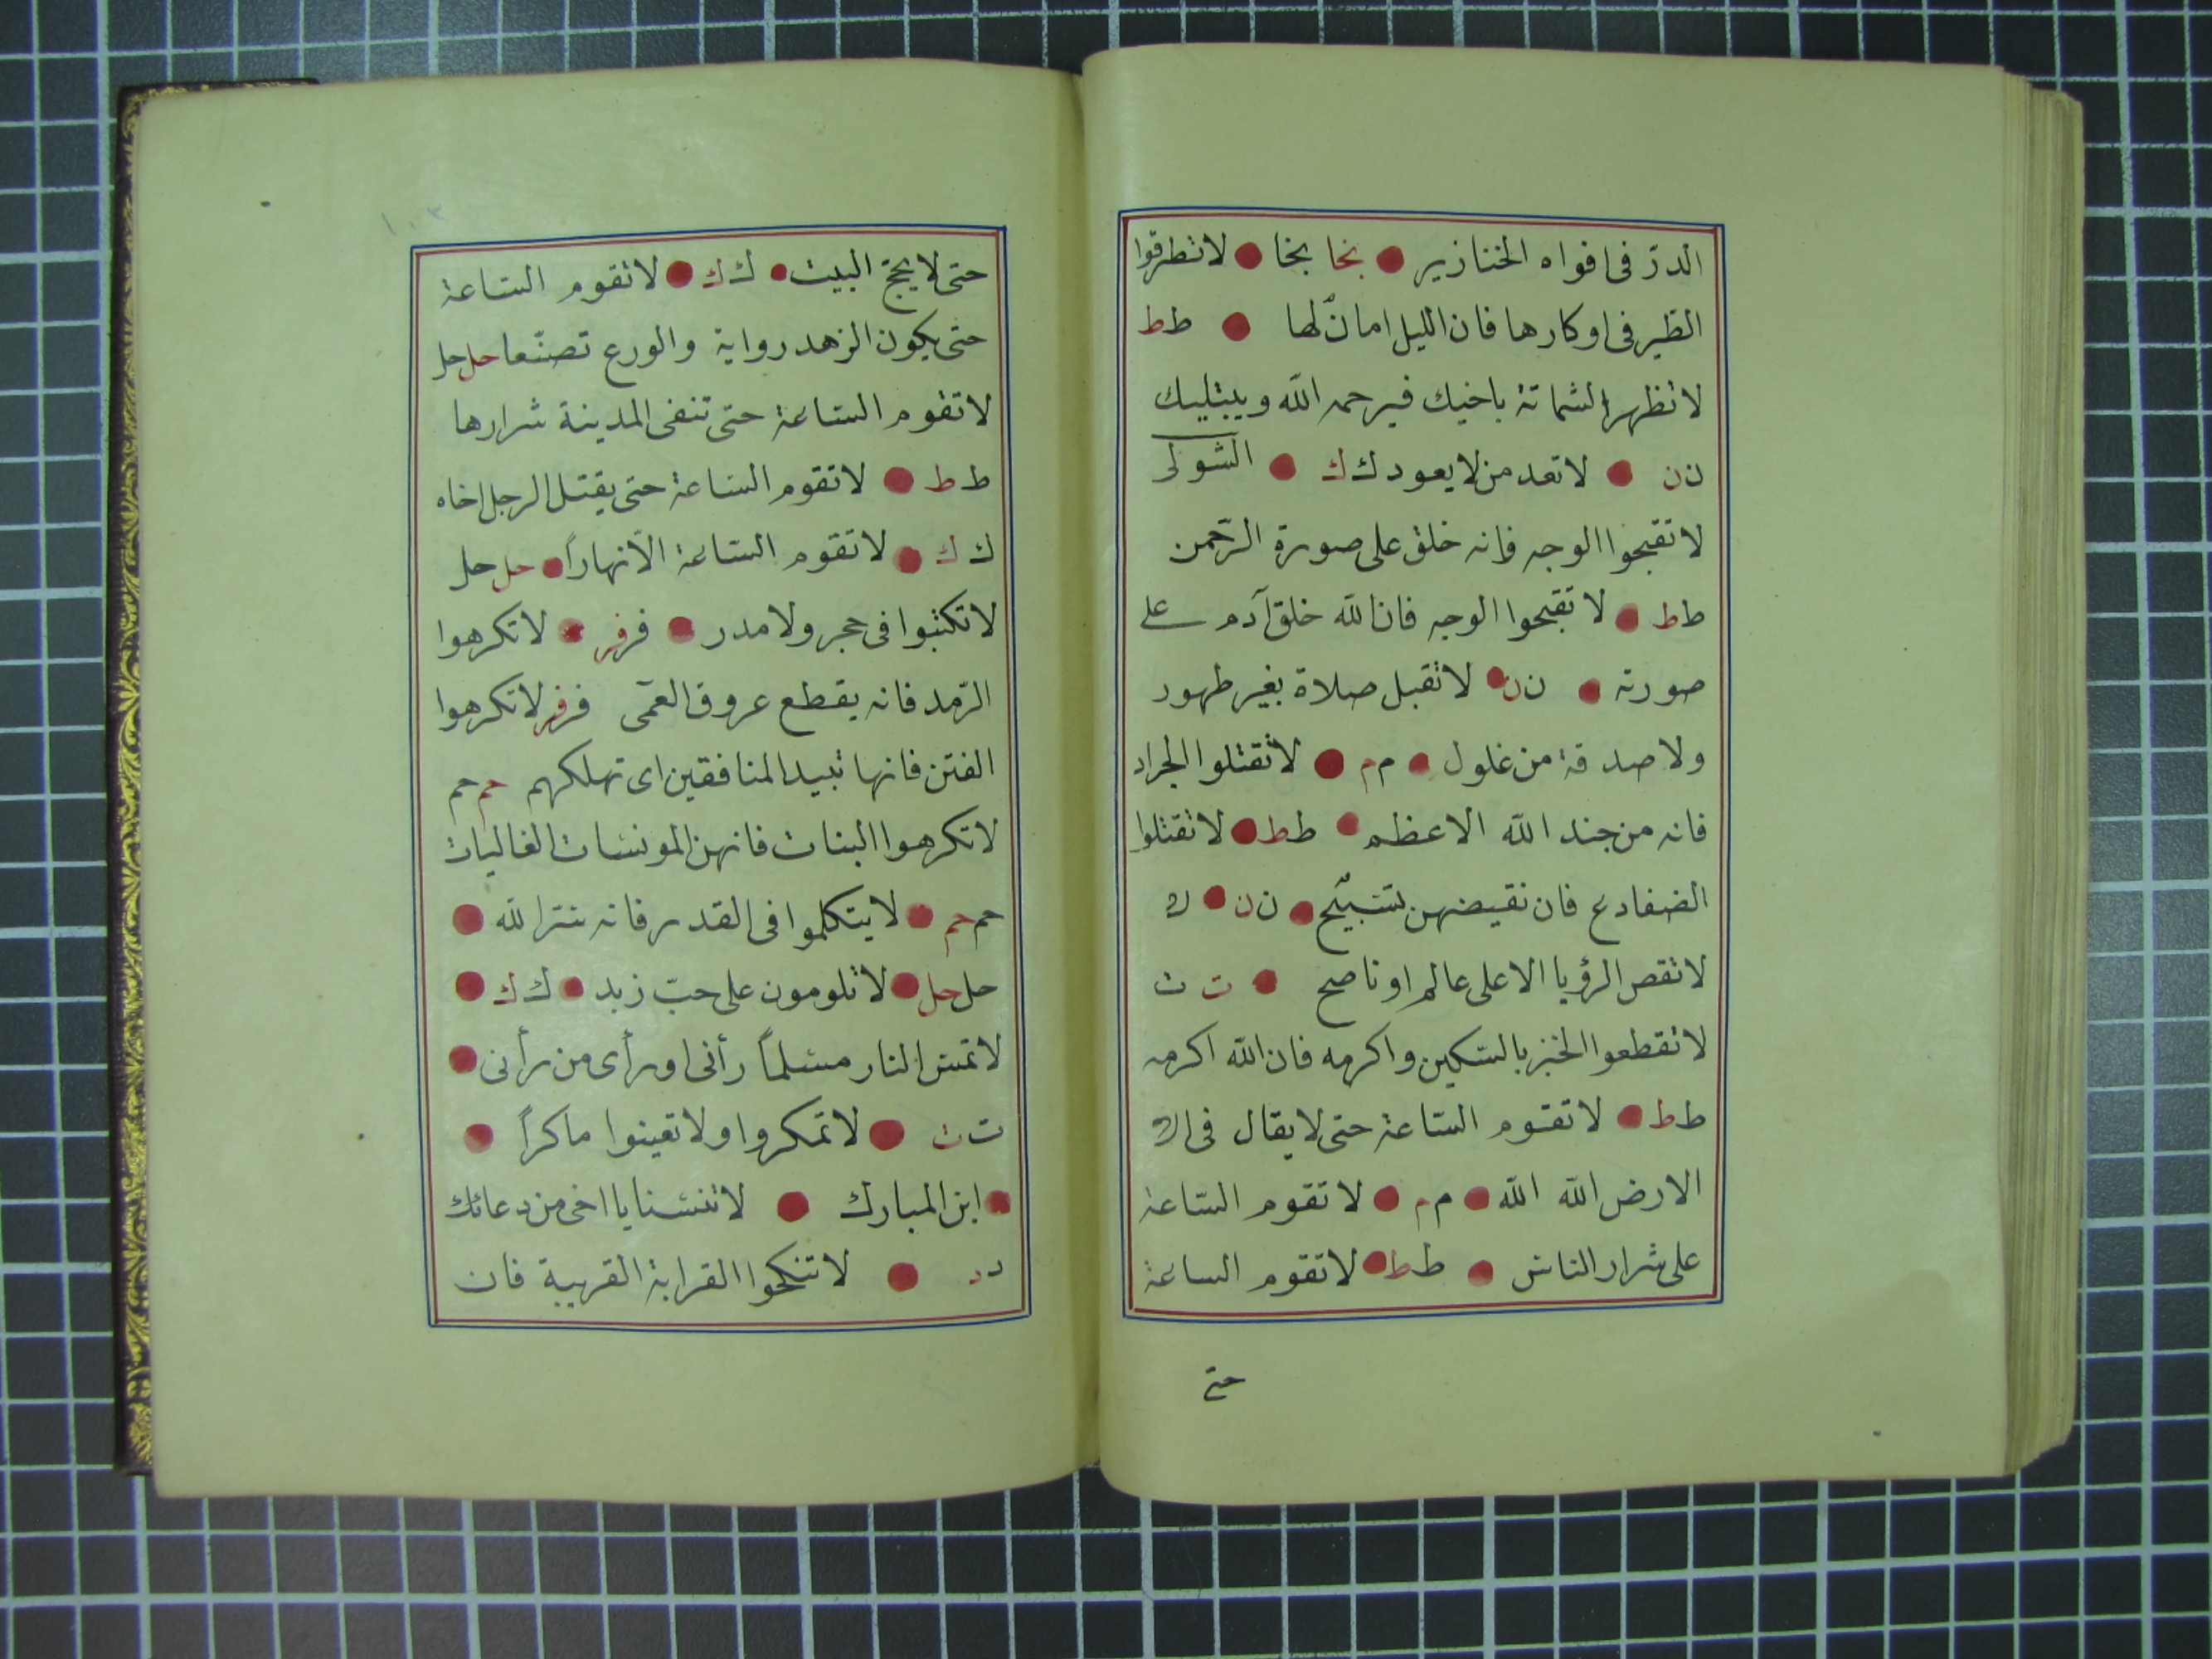 الدرّ فى افواه الخنازير بخا بخا لا تطرقوا
الطير فى اوكارها فان الليل امانٌ لها ط ط
لا تظهر الشماتة باخيك فيرحمه الله ويبتليك
ن ن لا تعد من لا يعودك ك
لا تقبحوا الوجه فانه خلق على صورة الرّحمن
ط ط لا تقبحوا الوجه فان الله خلق آدم على
صورته ن ن لا تقبل صلاة بغير طهور
ولا صدقة من غلول م م لا تقتلوا الجراد
فانه من جند الله الاعظم ط ط لا تقتلوا
الضفادع فان نقيضهن تسبيح ن ن
لا تقص الرؤيا الا على عالم او ناصح ت ت
لا تقطعوا الخبز بالسّكين واكرمه فان الله اكرمه
ط ط لا تقوم السّاعة حتى لا يقال فى
الارض الله الله م م لا تقوم السّاعة
على شرار الناس ط ط لا تقوم الساعة
حتى
١٠٣
حتى لا يحجّ البيت ك ك لا تقوم السّاعة
حتى يكون الزهد رواية والورع تصنّعا حل حل
لا تقوم السّاعة حتى تنفى المدينة شرارها
ط ط لا تقوم السّاعة حتى يقتل الرجل اخاه
ك ك لا تقوم السّاعة الّا نهاراً حل حل
لا تكتبوا فى حجر ولا مدر فر فر لا تكرهوا
الرّمد فانه يقطع عروق العمى فر فر لا تكرهوا
الفتن فانها تبيد المنافقين اى تهلكهم حم حم
لا تكرهوا البنات فانهن المونسات الغاليات
حم حم لا يتكلموا فى القدر فانه سر الله
حل حل لا تلومون على حبّ زيد ك ك
لا تمسّ النار مسلماً رأنى او رأى من رأنى
ت ت لا تمكروا ولا تعينوا ماكراً
ابن المبارك لا تنسنا يا اخى من دعائك
د د لا تنكحوا القرابة القريبة فان